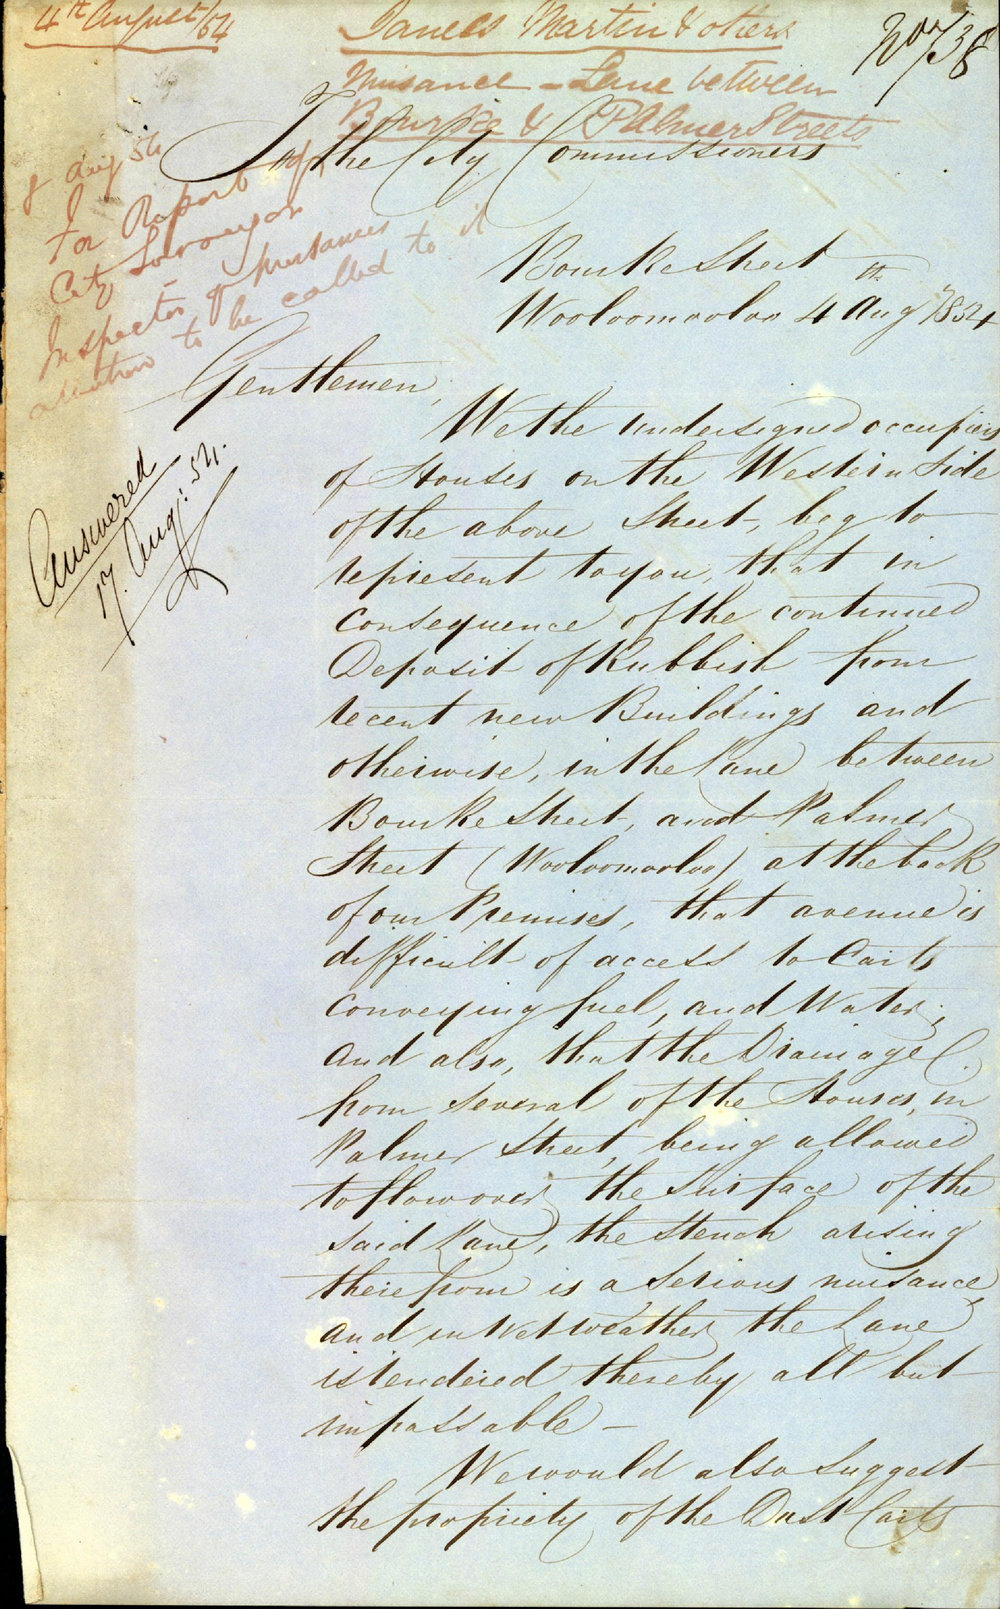 4th August/54
James Martin & others
No 738
Nuisance - Lane between
Bourke & Palmer Streets
To the City Commissioners
8 Aug 54
For Report of
City Surveyor
Inspector of Nuisances
attention to be called to it
Bourke Street
Wooloomooloo 4th Aug 1854
Gentlemen,
We the undersigned occupiers
of Houses on the Western Side
of the above Street, beg to
represent to you, that in
Consequence of the continued
Deposit of Rubbish from
recent new Buildings and
otherwise, in the Lane between
Bourke Street, and Palmer
Street (Wooloomooloo) at the back
of our Premises, that avenue is
difficult of access to Carts
Conveying fuel, and Water;
And also, that the Drainage
from several of the Houses, in
Palmer Street, being allowed
to flow over the Surface of the
said Lane, the Stench arising
therefrom is a Serious nuisance,
and in Wet weather the Lane
is rendered thereby all but
impassable -
We would also suggest
the propriety of the Dust Carts
Answered
17. Aug: 54.